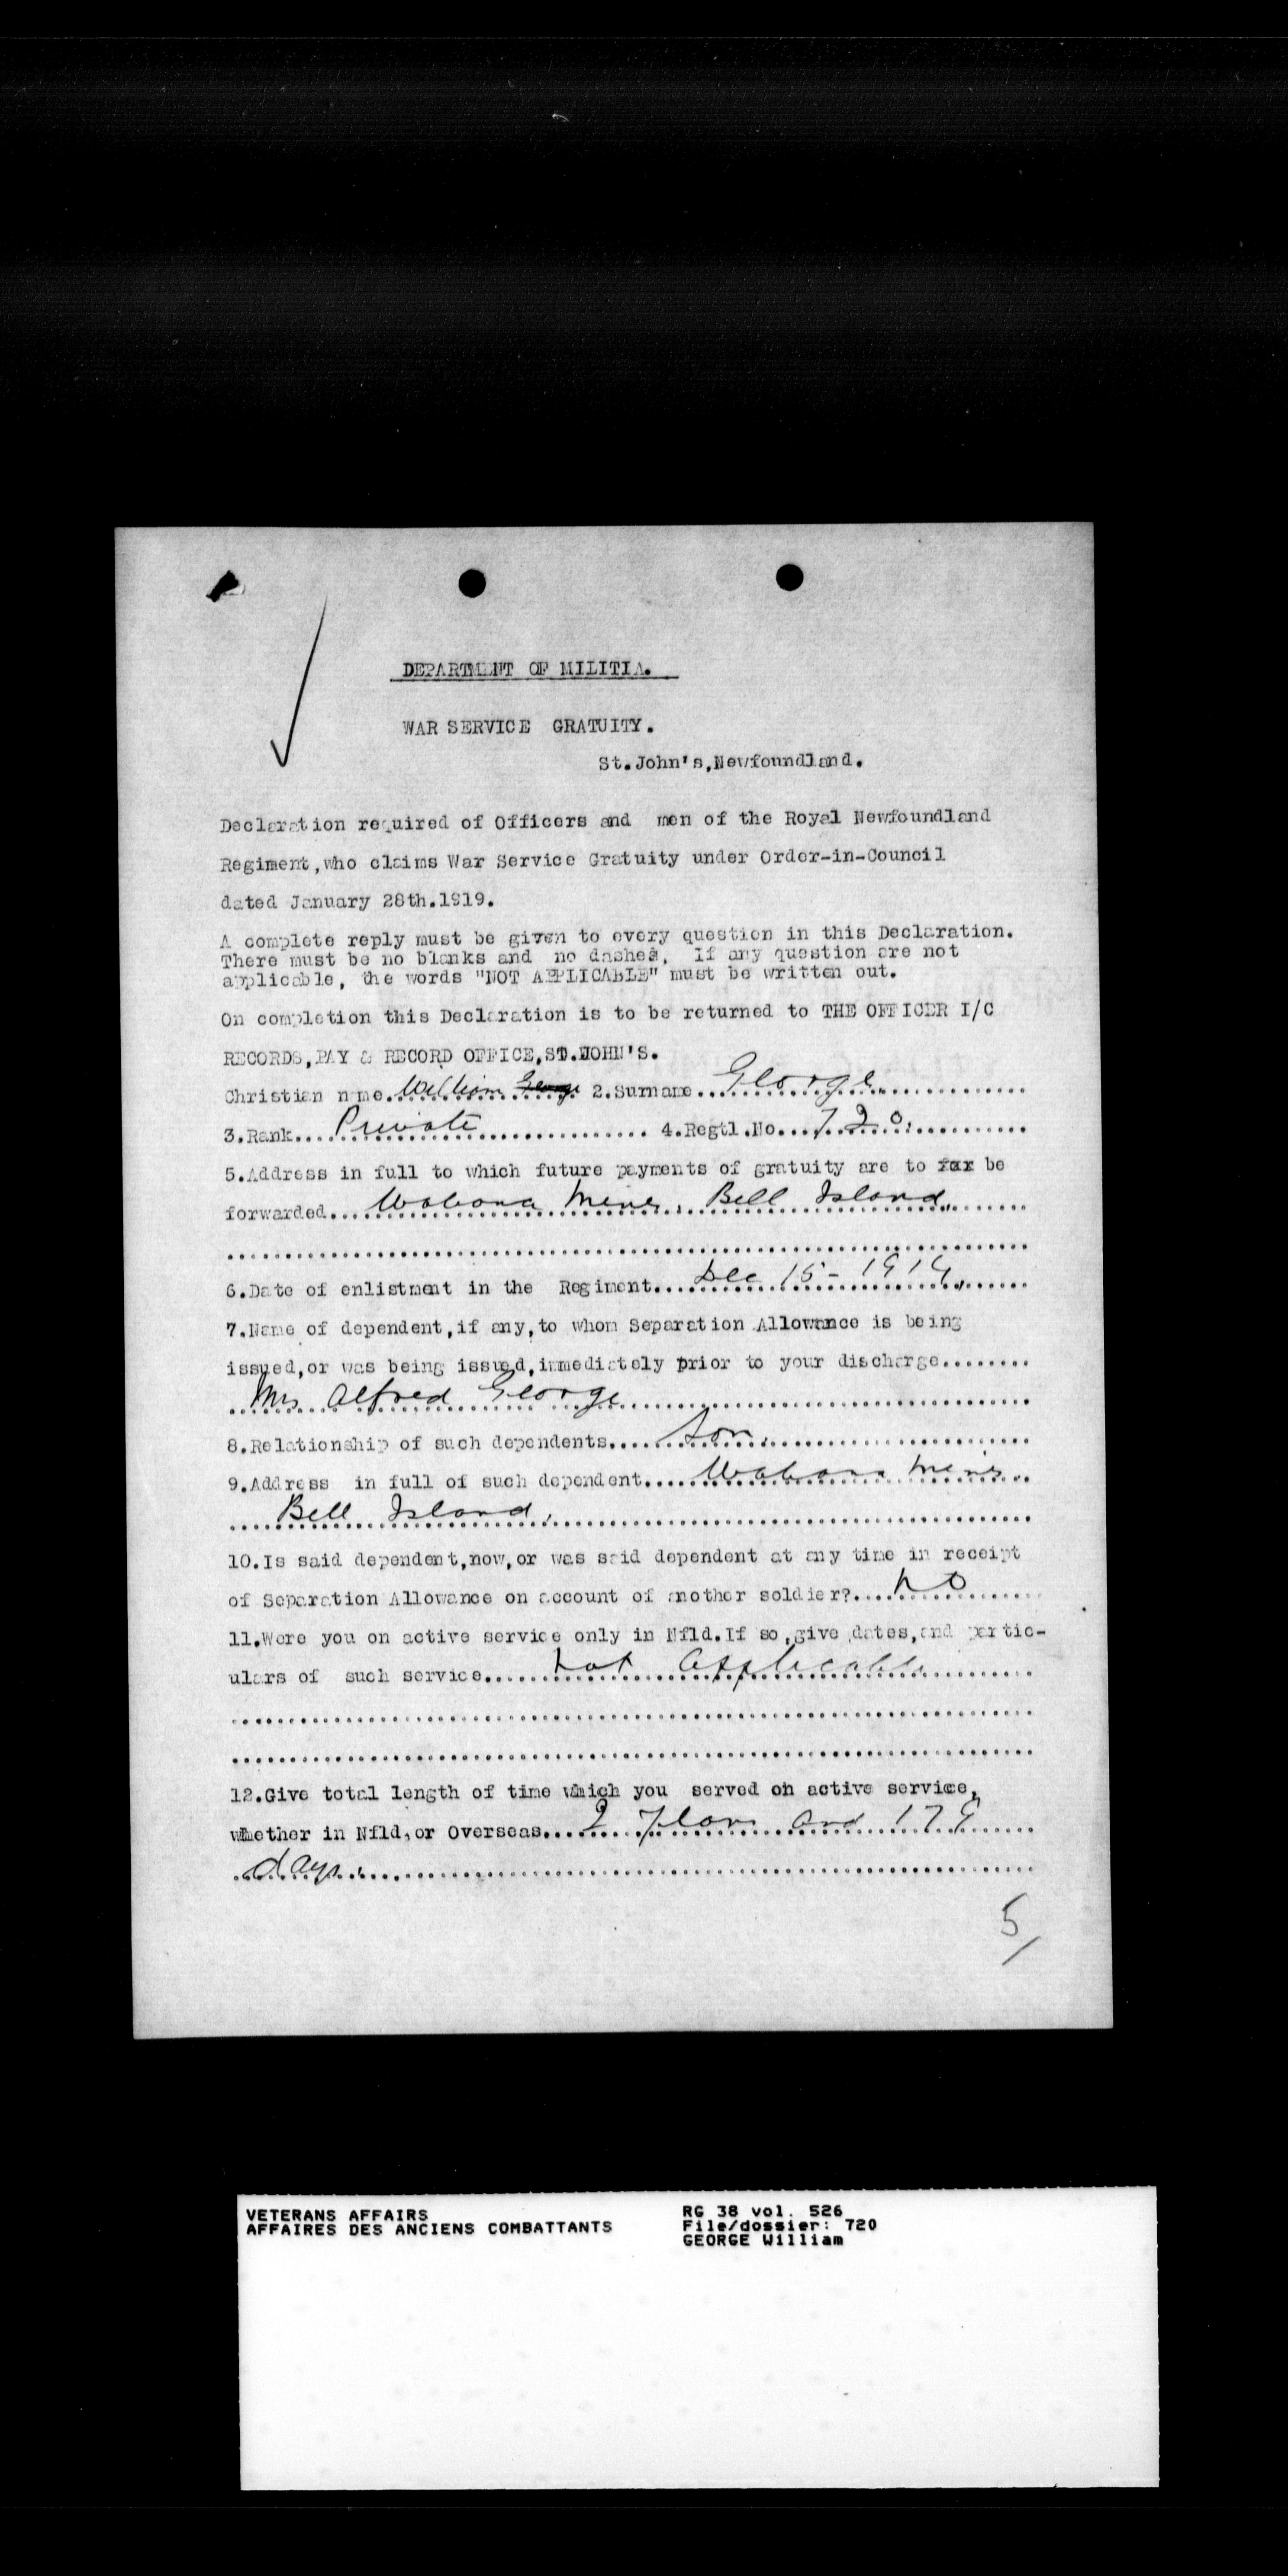 DEPARTMENT OF MILITIA.
WAR SERVICE GRATUITY.
St.John's,Newfoundland.
Declaration required of Officers and men of the Royal Newfoundland
Regiment,who claims War Service Gratuity under Order-in-Council
dated January 28th.1919.
A complete reply must be given to every question in this Declaration.
There must be no blanks and no dashes, If any question are not
applicable, the words "NOT APPLICABLE" must be written out.
On completion this Declaration is to be returned to THE OFFICER I/C
RECORDS,PAY & RECORD OFFICE,ST.JOHN'S.
Christian name. William George 2.Surname... George
3.Rank.... Private 4.Regtl.No.... 720.
5.Address in full to which future payments of gratuity are to for be
forwarded... Wabana Mines, Bell Island,
6.Date of enlistment in the Regiment.... Dec 15 - 1914,
7.Name of dependent,if any,to whom Separation Allowance is being
issued,or was being issued,immediately prior to your discharge........
Mrs Alfred George
8.Relationship of such dependents.... Son.
9.Address in full of such dependent.... Wabana Mines
Bell Island,
10.Is said dependent,now,or was said dependent at any time in receipt
of Separation Allowance on account of another soldier?.... No
11.Were you on active service only in Nfld.If so,give dates,and partic-
ulars of such service...... Not Applicable
12.Give total length of time which you served on active service,
whether in Nfld,or Overseas.... 2 years and 179
days.
5/
VETERANS AFFAIRS
AFFAIRES DES ANCIENS COMBATTANTS
RG 38 vol. 526
File/dossier: 720
GEORGE William